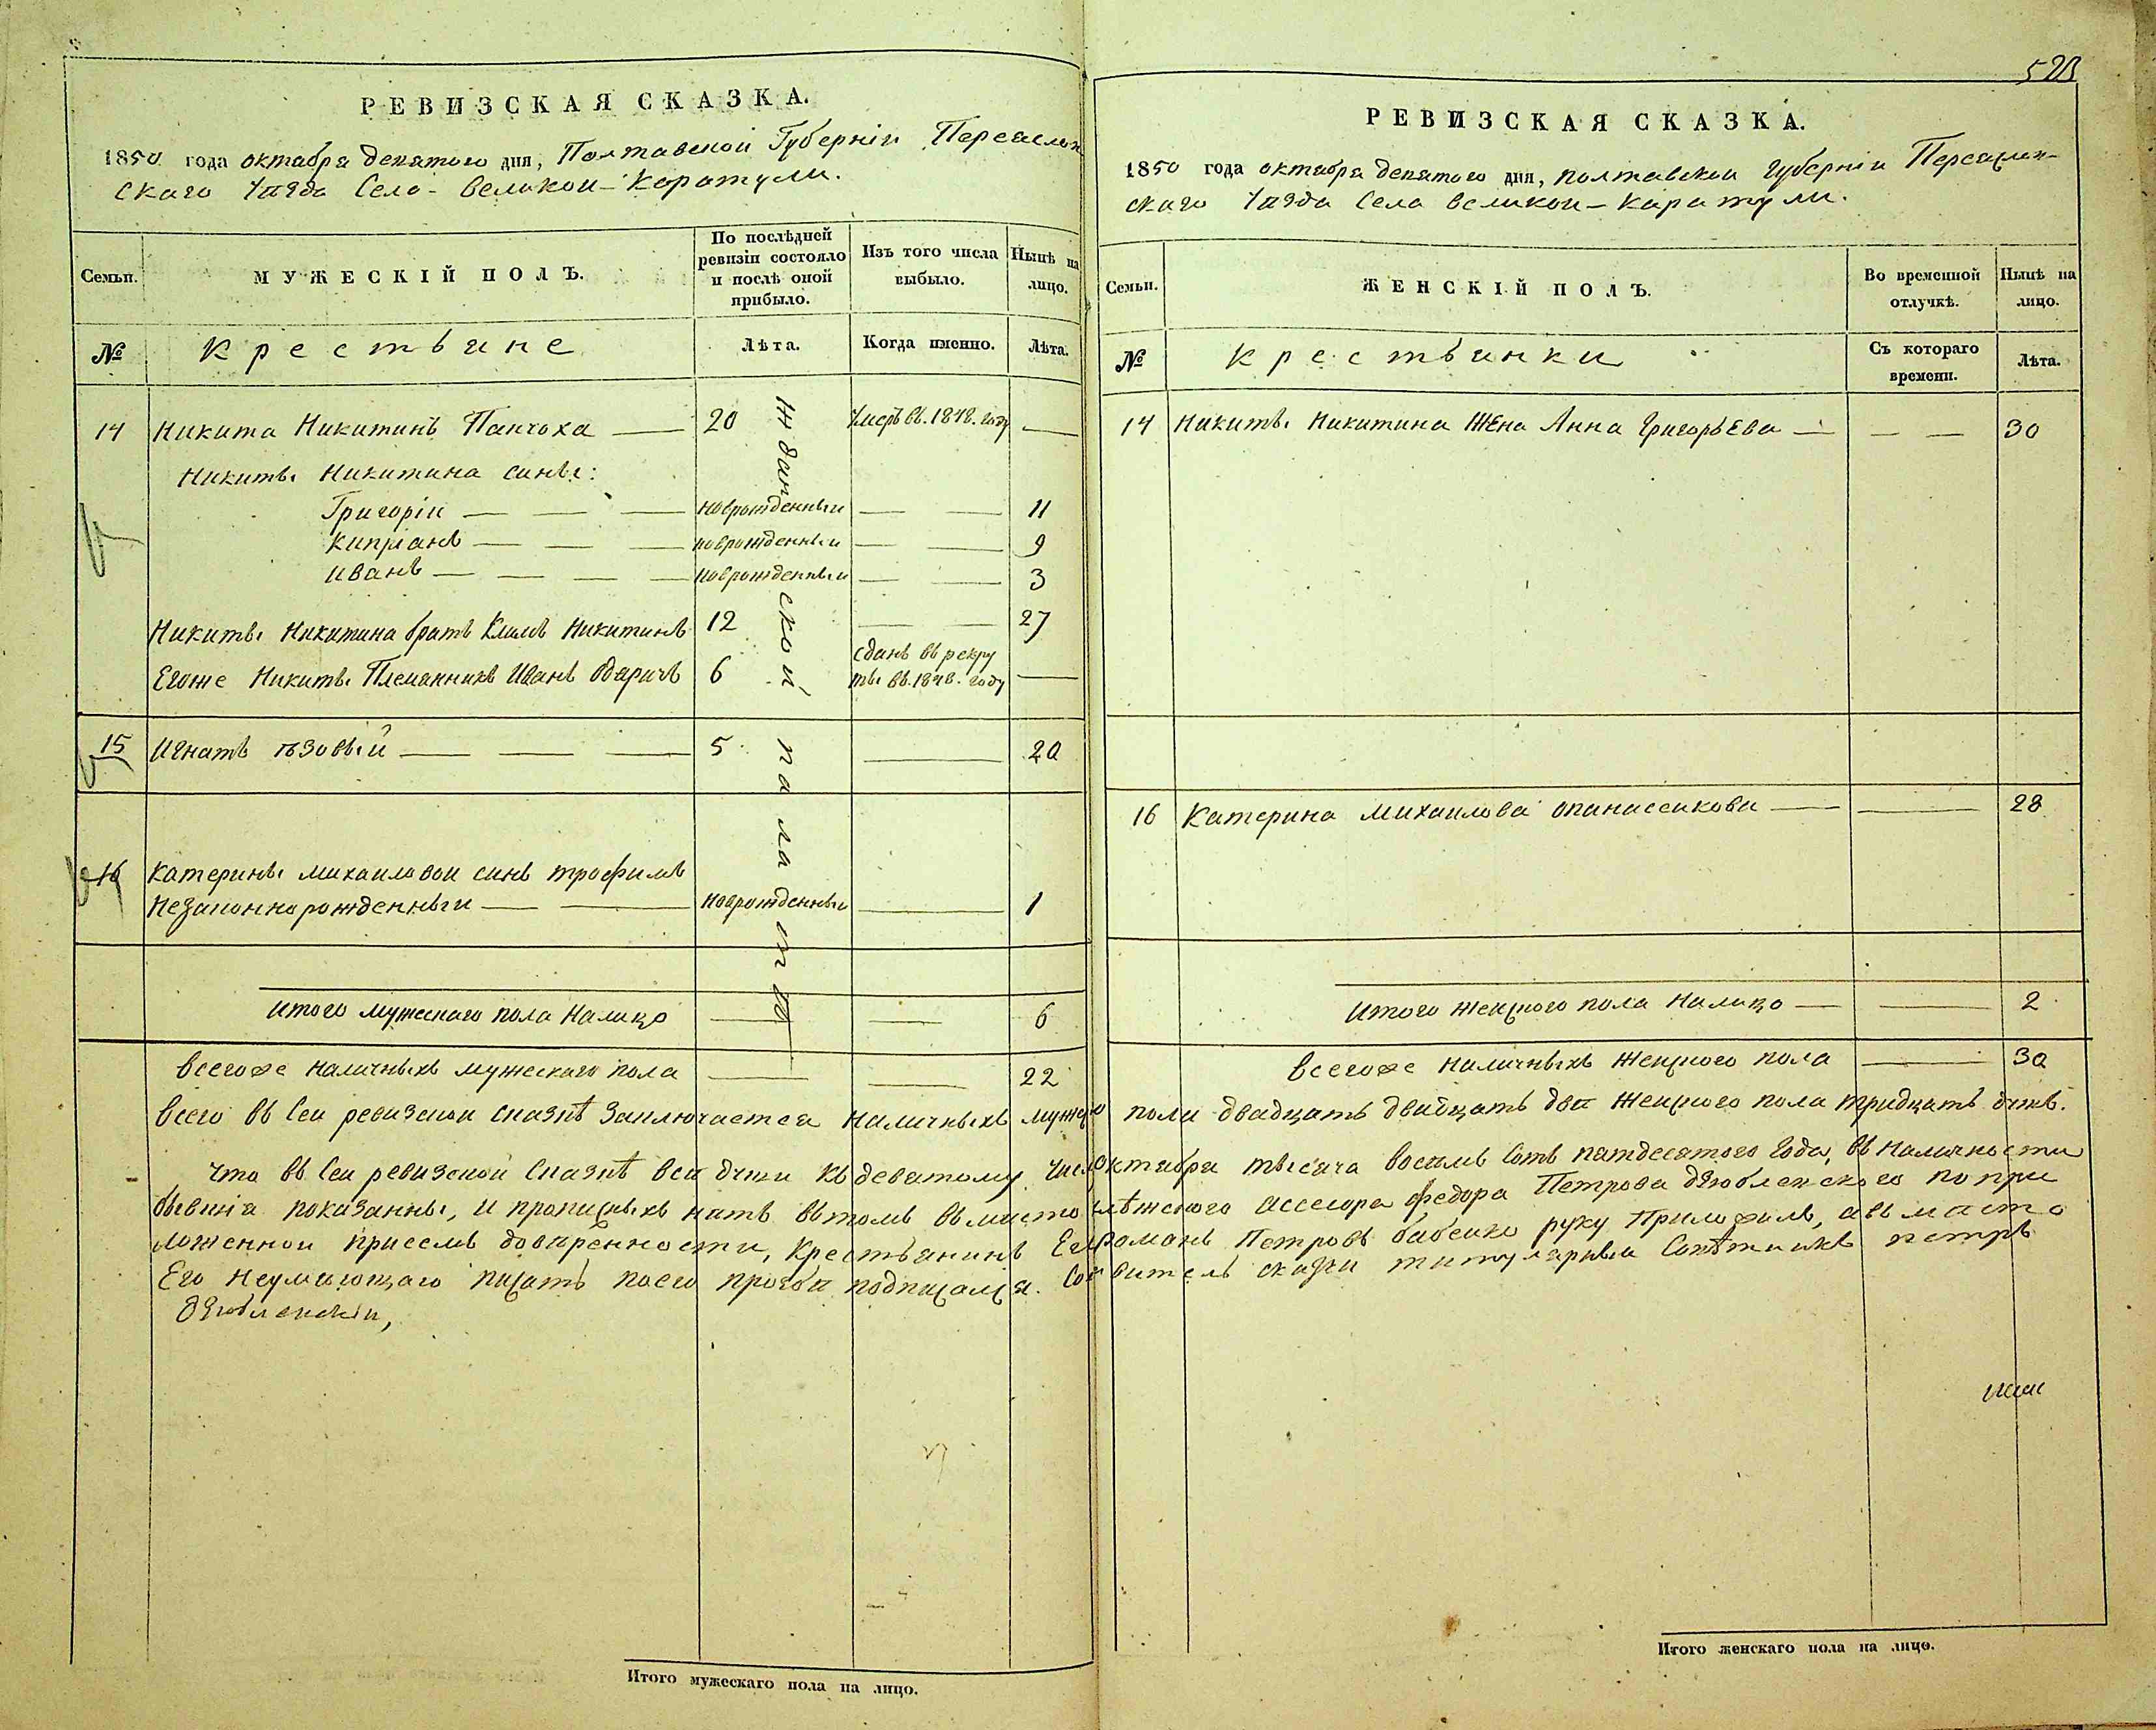 РЕВИЗСКАЯ СКАЗКА.
1850 года октабра девятого дня, Полтавской Губерніи Переяслав
скаго уязда Села Великой-Каратули.
Семьи.
МУЖЕСКІЙ ПОЛЪ.
По послѣдней ревизіи состояло и послѣ оной прибыло.
Изъ того числа выбыло.
Нынѣ на лицо.
№
Крестьяне
Лѣта.
Когда именно.
Лѣта.
14 Никита Никитинъ Панчоха — 20 умеръ въ 1848. году —
Никиты Никитина сины:
Григорій — — — новрожденный — — 11
Кипріанъ — — — новрожденный — — 9
иванъ — — — — новрожденный — — 3
Никиты Никитина братъ Климъ Никитинъ 12 — — 27
Егоже Никиты Племянникъ Иванъ Одаричъ 6 сданъ въ рекру
ты въ 1848. году —
15 Игнатъ — — — 5 — 20
16 Катерины михаиловой синъ трофимъ
Незаконнорожденный — — новрожденный — 1
Ждановской палаты
итого мужескаго пола Налицо — — 6
всегоже наличныхъ мужескаго пола — — 22
528
РЕВИЗСКАЯ СКАЗКА.
1850 года октабра девятого дня, полтавской губерніи Переяслав-
скаго уязда Села великой-каратули.
Семьи.
ЖЕНСКІЙ ПОЛЪ.
Во временной отлучкѣ.
Нынѣ на лицо.
№
крестьянки
Съ котораго времени.
Лѣта.
14 Никиты Никитина Жена Анна Григорьева — — — 30
16 Катерина михаилова опанассикова — — 28
Итого женского пола Налицо — — 2
всегоже наличныхъ женского пола — 30
всего въ сей ревизской сказкѣ заключается наличныхъ муже пола двадцать двадцать два женского пола тридцать душъ.
что въ сей ревизской сказкѣ вся души къ деватому числ октабра тысяча восемь сотъ пятдесятого года, въ наличности
бывшія показанны, и прописныхъ нѣтъ вътомъ вьмисто ассесора федора Петрова дзюбленского попри
ложенной присемъ довѣренности, крестьянинъ Его Романъ Петровъ бабенко руку приложилъ, авъмасто
Его Неумѣющаго писать поего прозби подписался. Сос витель сказки титулярный Совѣтникъ петръ
дзюбленскій,
Итого мужескаго пола на лицо.
Итого женскаго пола на лицо.